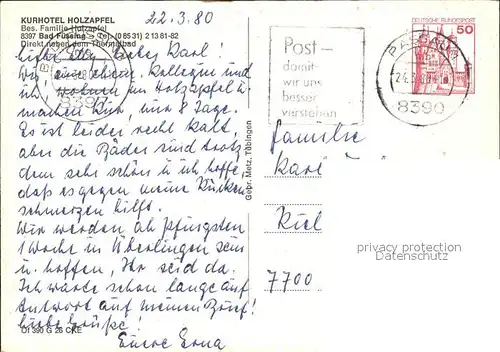 22.3.80
KURHOTEL HOLZAPFEL
Bes. Familie Holzapfel
8397 Bad Füssing – Tel. (0 85 31) 2 13 81-82
Direkt neben dem Thermalbad
Liebe Elly, lieber Karl!
Wir, eine ehem. Kollegin und
ich wohnen im Holzapfel u.
machen Kur, nur 8 Tage.
Es ist leider recht kalt,
aber die Bäder sind trotz-
dem sehr schön u. ich hoffe,
daß es gegen meine Rücken-
schmerzen hilft.
Wir werden ab Pfingsten
1 Woche in Überlingen sein
u. hoffen, Ihr seid da.
Ich warte schon lange auf
Antwort auf meinen Brief!
Liebe Grüße!
Eure Erna
Ul 390 G 26 CKE
Gebr. Metz, Tübingen
Post –
damit
wir uns
besser
verstehen
PASSAU
24.3.80
8390
8390
DEUTSCHE BUNDESPOST
50
Familie
Karl
Kiel
7700
privacy protection
Datenschutz